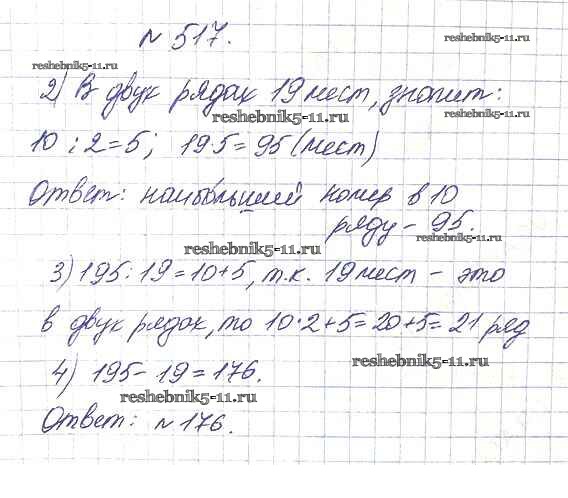 № 517.
reshebnik5-11.ru
reshebnik5-11.ru
2) В двух рядах 19 мест, значит:
reshebnik5-11.ru
reshebnik5-11.ru
10 : 2 = 5; 19·5 = 95 (мест)
Ответ: наибольший номер в 10
ряду - 95.
reshebnik5-11.ru
reshebnik5-11.ru
3) 195 : 19 = 10 + 5, т.к. 19 мест - это
в двух рядах, то 10·2+5=20+5=21 ряд
reshebnik5-11.ru
4) 195 - 19 = 176.
reshebnik5-11.ru
Ответ: № 176.
reshebnik5-11.ru